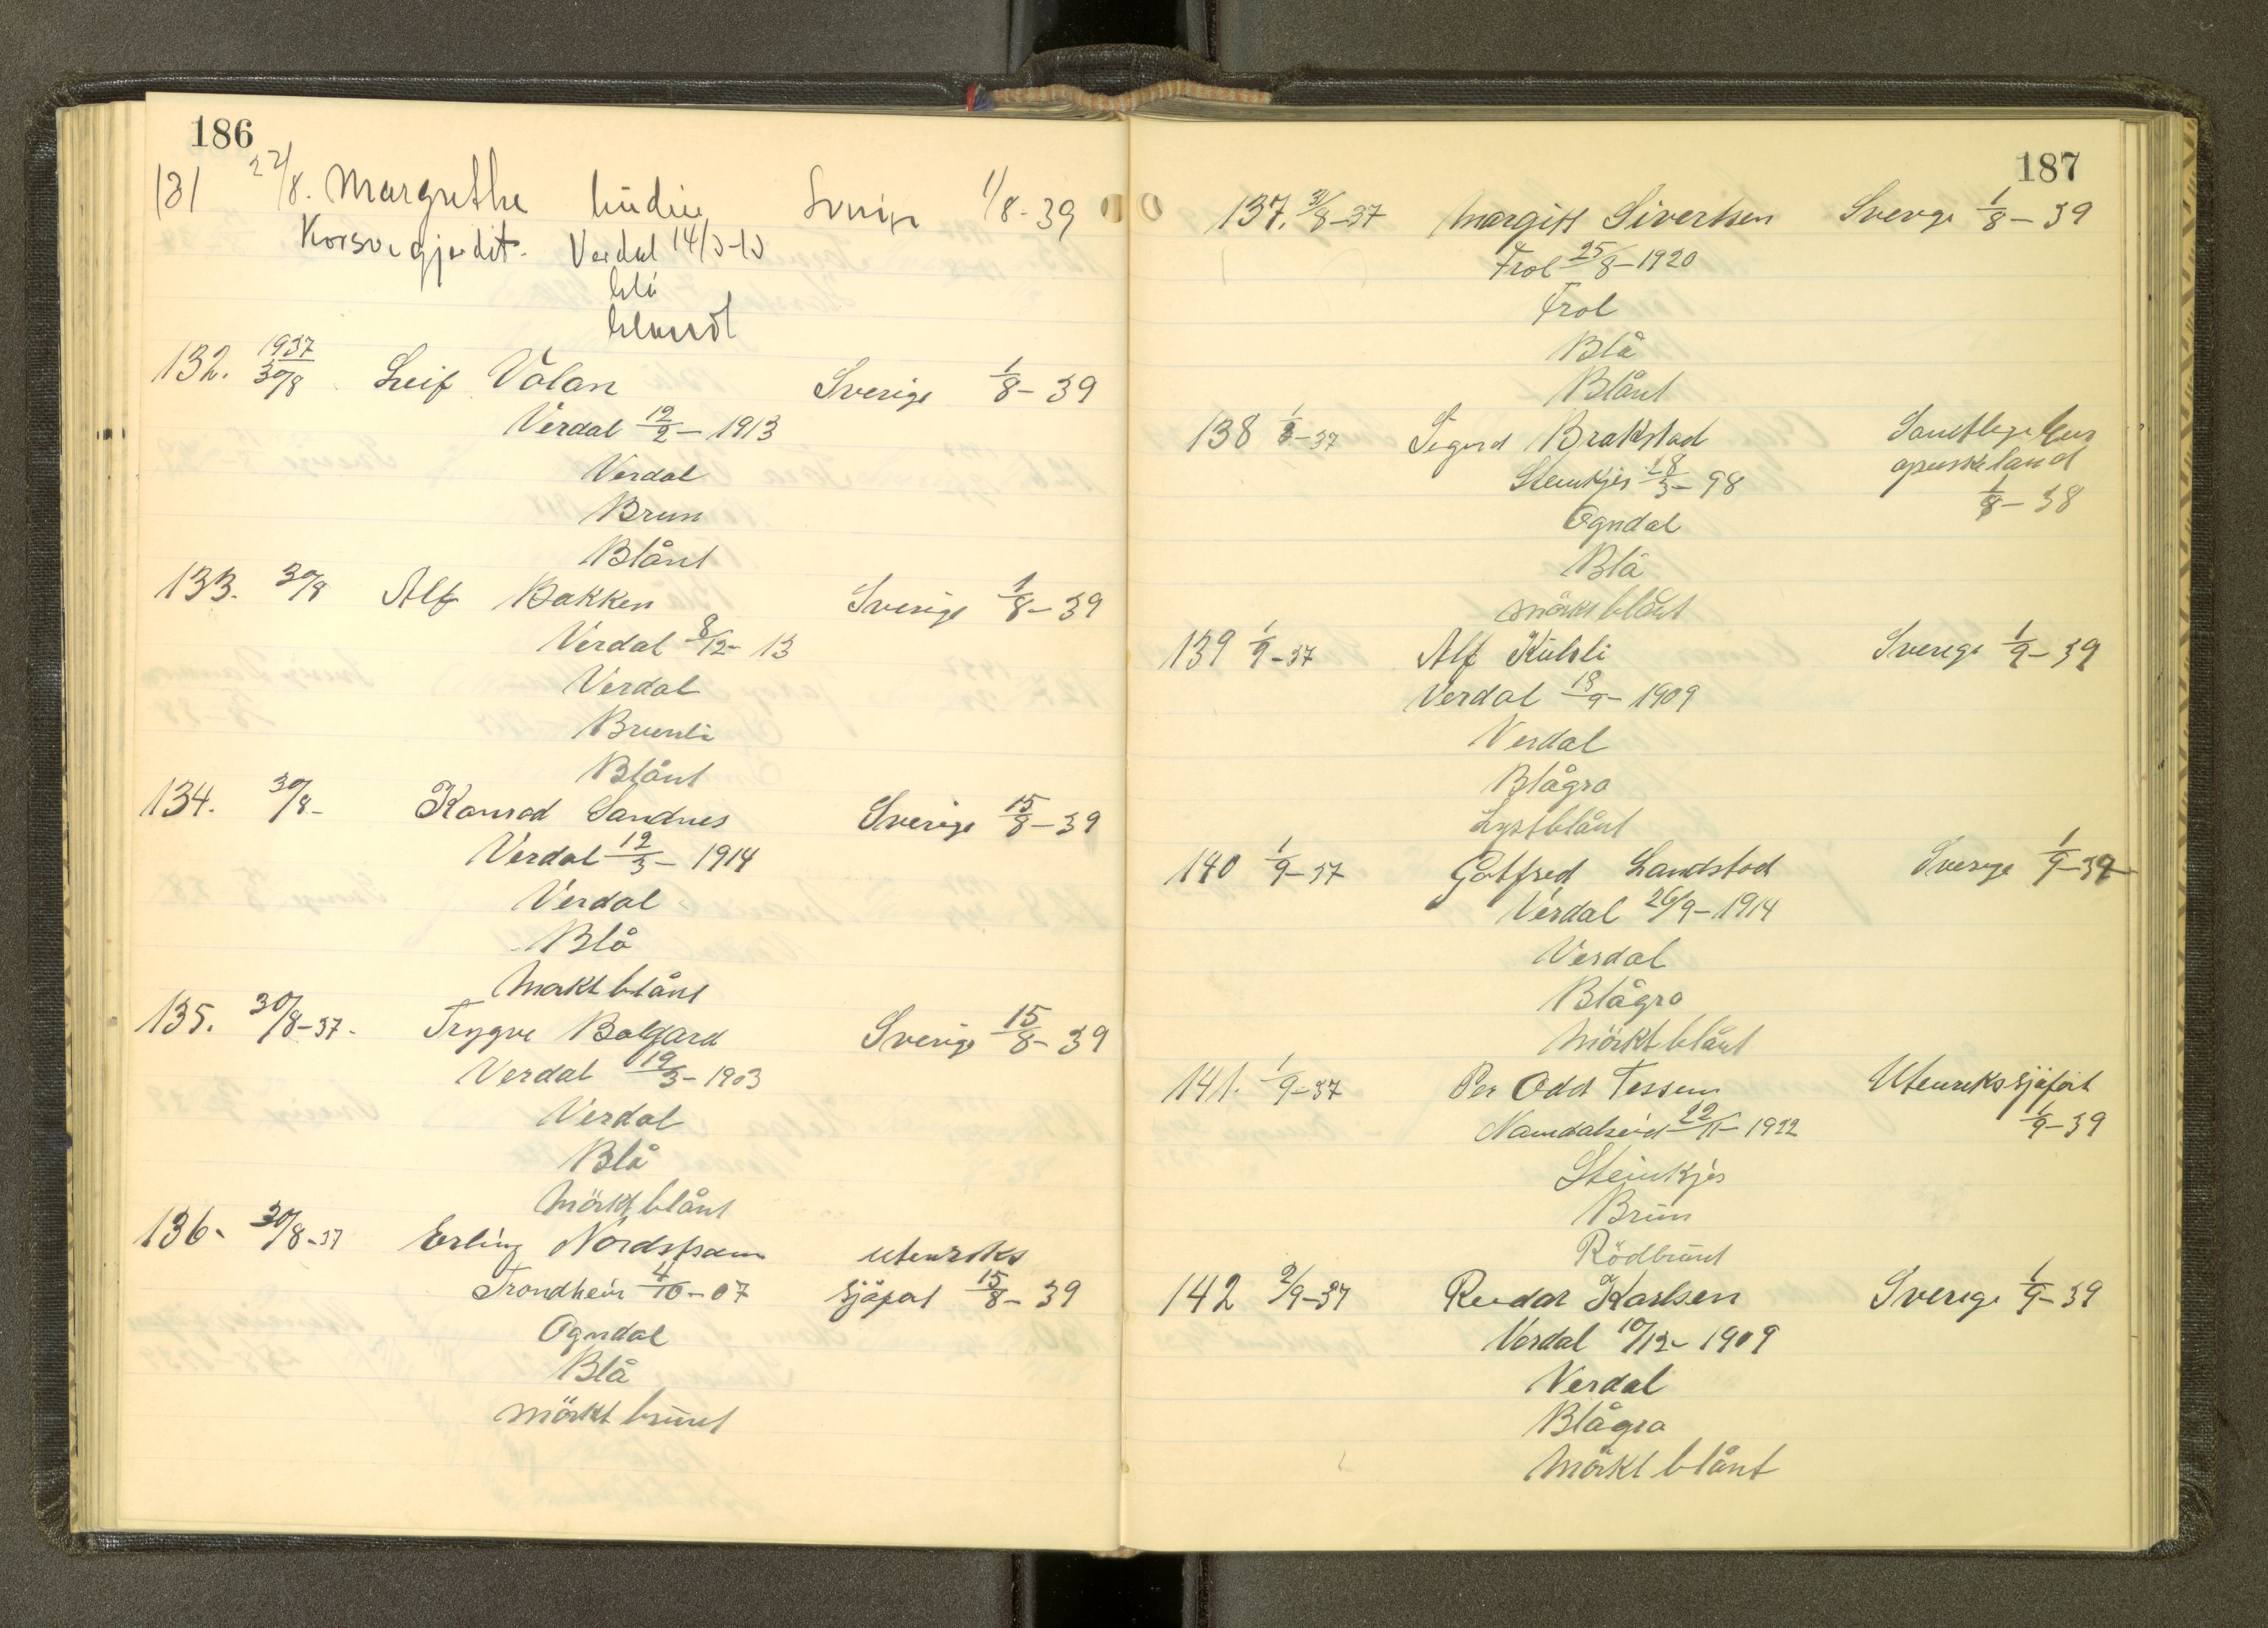 186
131 27/8. Margrethe Sverige 1/8-39
Verdal 14/3-13
blå
blondt
132. 1937 30/8 Leif Volan Sverige 1/8-39
Verdal 12/2-1913
Verdal
Brun
Blånt
133. 30/8 Alf Bakken Sverige 1/8-39
Verdal 8/12-13
Verdal
Blånt
134. 30/8- Konrad Sandnes Sverige 15/8-39
Verdal 12/3-1914
Verdal
Blå
Mørkt blånt
135. 30/8-37- Trygve Bolgard Sverige 15/8-39
Verdal 19/3-1903
Verdal
Blå
Mörkt blånt
136- 30/8-37 Erling utenriks
Trondheim 4/10-07 Sjöfart 15/8-39
Ogndal
Blå
Mörkt brunt
187
137. 31/8-37 Margitt Sivertsen Sverge 1/8-39
Frol 25/8-1920
Frol
Blå
Blånt
138 Sigurd Brakstad Samtlige Eur
Steinkjer 18/3-98 opeiske land
Ogndal 1/8-38
Blå
mörkt blånt
139 1/9-37 Alf Kulsli Sverige 1/9-39
Verdal 18/9-1909
Verdal
Blågra
Lystblånt
140 1/9-37 Gotfred Landstad Sverge 1/9-39
Verdal 26/9-1914
Verdal
Blågra
Mörkt blånt
141. 1/9-37 Per Odd Tessem Utenriks sjøfart
Namdalseid 22/11-1922 1/9-39
Steinkjer
Brun
Rödbrunt
142 2/9-37 Reidar Karlsen Sverige 1/9-39
Verdal 10/12-1909
Verdal
Blågra
Mörkt blånt